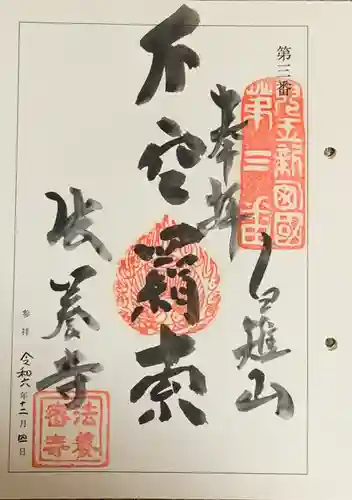 第三番
奉拝
白雉山
不空羂索
法養寺
参拝
令和六年十二月四日
第三番
法養
密寺